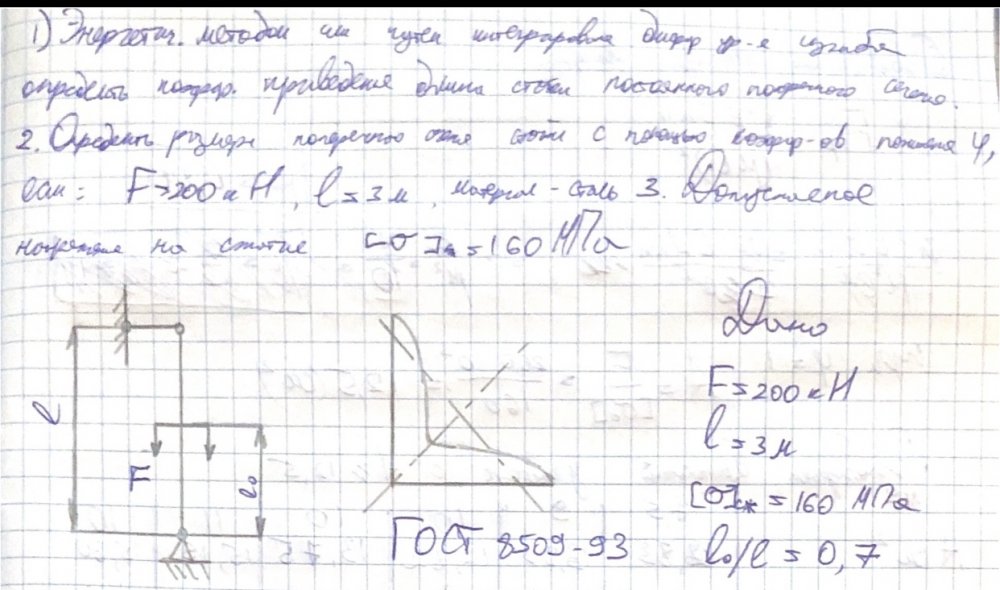 1) Энергетич. методом или путем интегрирования дифф ур-я изгиба
определить коэфф. приведения длины стойки постоянного поперечного сечения.
2. Определить размеры поперечного сечения стойки с помощью коэфф-ов φ,
если: F=200 кН, l=3м, материал - сталь 3. Допускаемое
напряжение на сжатие [σ] = 160 МПа
Дано
F=200 кН
l=3м
[σ]сж = 160 МПа
l₀/l = 0,7
l
F
l₀
ГОСТ 8509-93